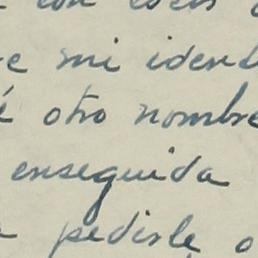 con esos
e mi ident
é otro nombre
enseguida
pedirle o